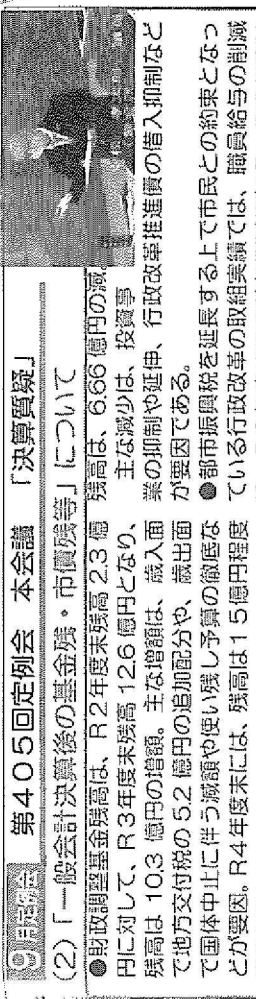 9月定例会 第405回定例会 本会議 「決算質疑」
(2)「一般会計決算後の基金残・市債残等」について
●財政調整基金残高は、R2年度末残高2.3億
円に対して、R3年度末残高12.6億円となり、
残高は10.3億円の増額。主な増額は、歳入面
で地方交付税の5.2億円の追加配分や、歳出面
で国体中止に伴う減額や使い残し予算の徹底な
どが要因。R4年度末には、残高は15億円程度
残高は、6.66億円の減。
主な減少は、投資事
業の抑制や延伸、行政改革推進債の借入抑制など
が要因である。
●都市振興税を延長する上で市民との約束となっ
ている行政改革の取組実績では、職員給与の削減